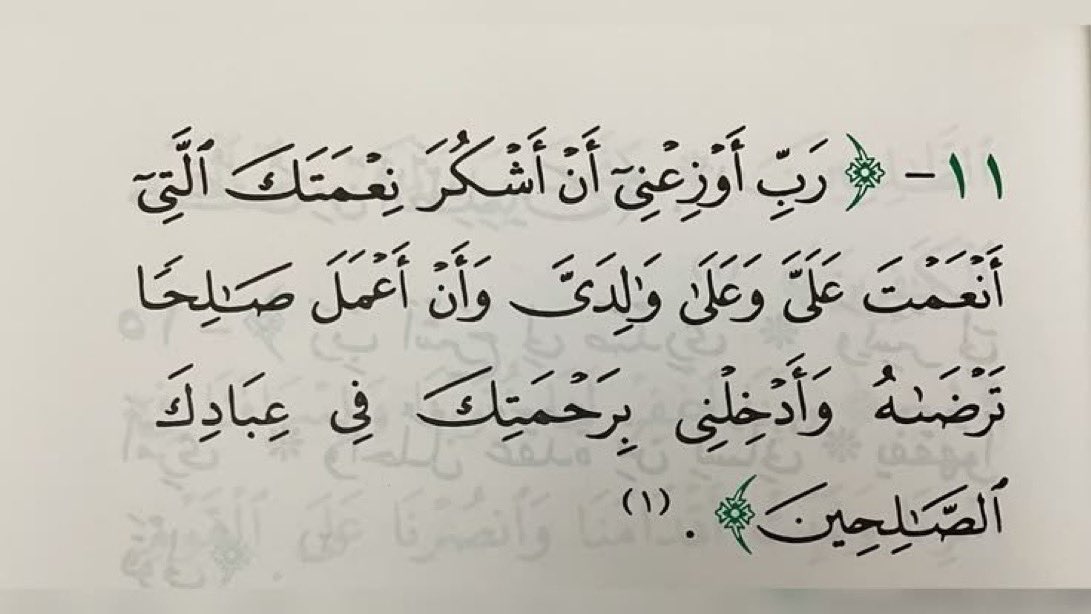 ١١- ﴿رَبِّ أَوْزِعْنِىٓ أَنْ أَشْكُرَ نِعْمَتَكَ ٱلَّتِىٓ
أَنْعَمْتَ عَلَىَّ وَعَلَىٰ وَٰلِدَىَّ وَأَنْ أَعْمَلَ صَـٰلِحًا
تَرْضَىٰهُ وَأَدْخِلْنِى بِرَحْمَتِكَ فِي عِبَادِكَ
ٱلصَّـٰلِحِينَ﴾ . (١)